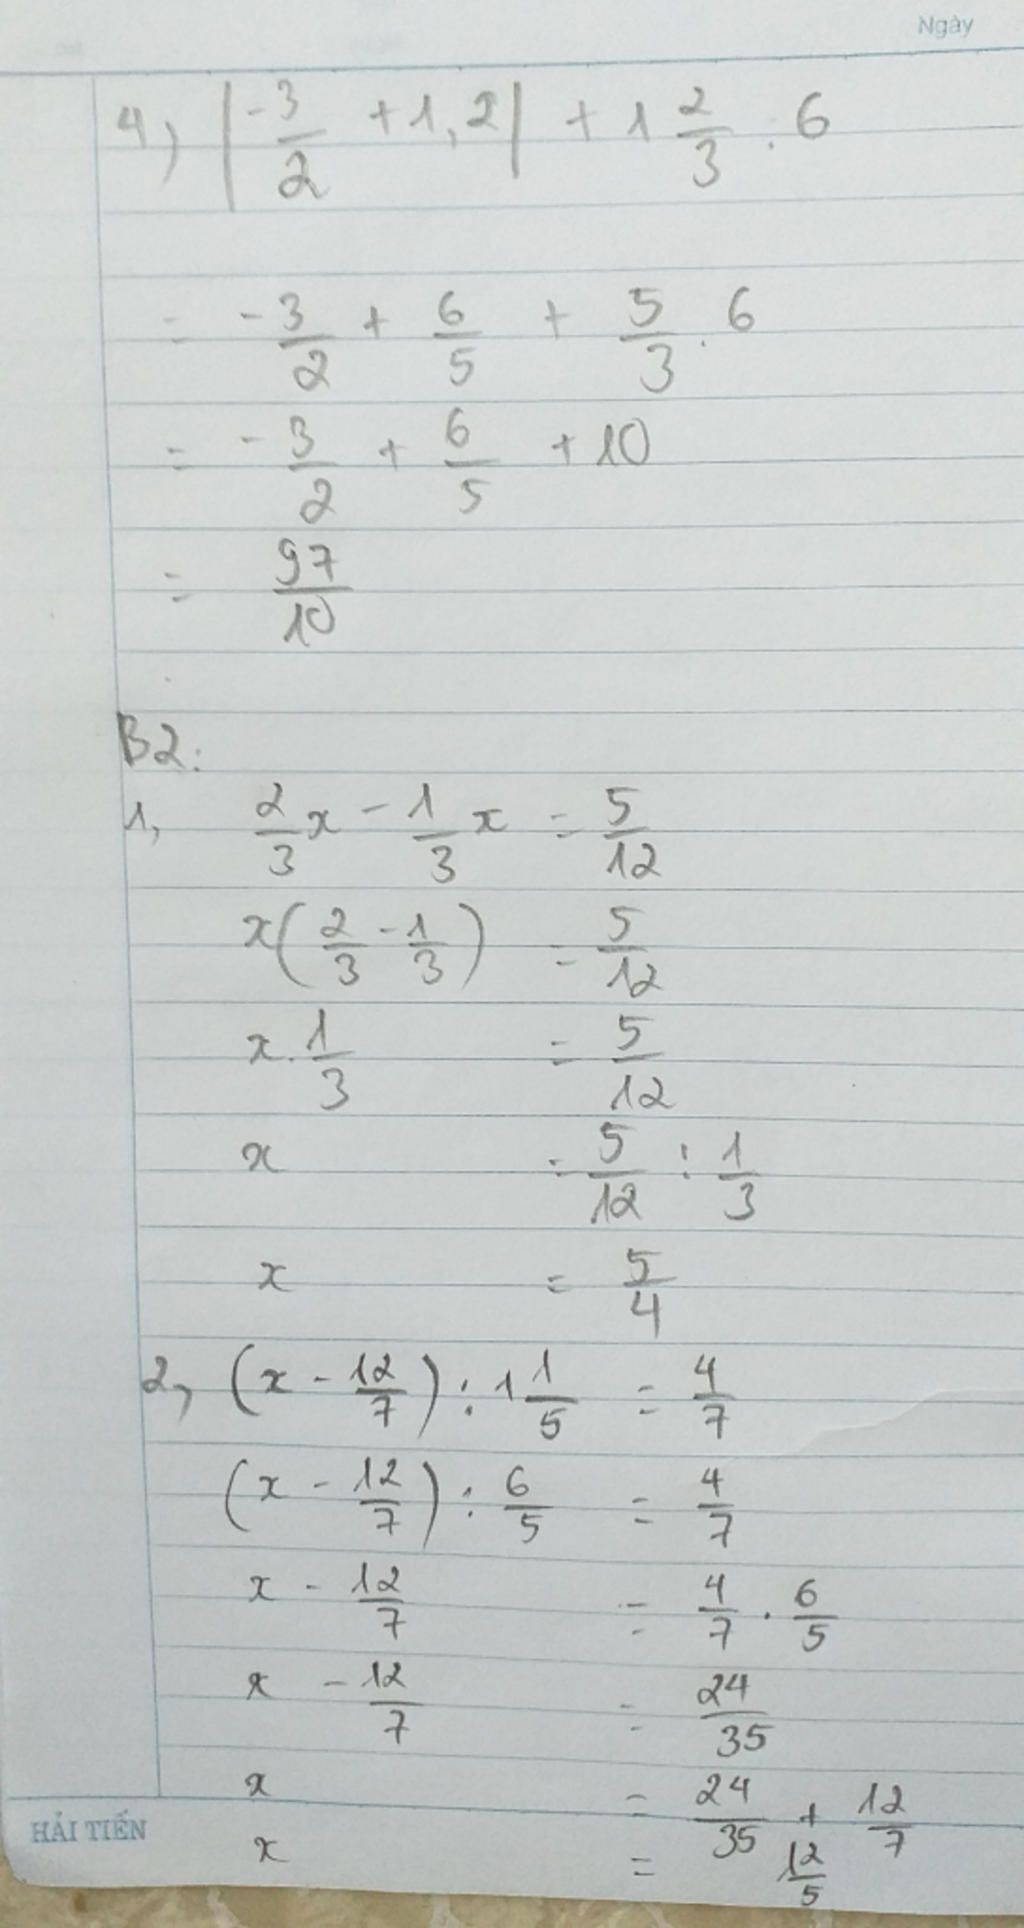 Ngày
4) |-3/2 + 1,2| + 1 2/3 . 6
= -3/2 + 6/5 + 5/3 . 6
= -3/2 + 6/5 + 10
= 97/10
B2:
1, 2/3 x - 1/3 x = 5/12
x(2/3 - 1/3) = 5/12
x . 1/3 = 5/12
x = 5/12 : 1/3
x = 5/4
2, (x - 12/7) : 1 1/5 = 4/7
(x - 12/7) : 6/5 = 4/7
x - 12/7 = 4/7 . 6/5
x - 12/7 = 24/35
x = 24/35 + 12/7
x = 12/5
HẢI TIẾN